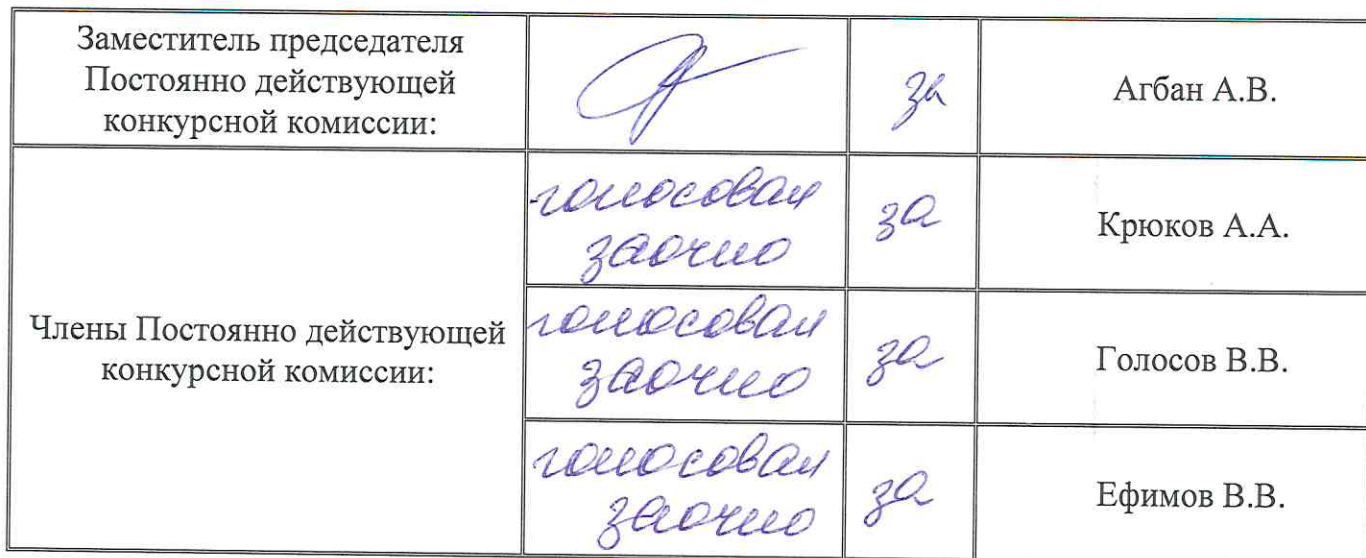 Заместитель председателя
Постоянно действующей
конкурсной комиссии:
за
Агбан А.В.
Члены Постоянно действующей
конкурсной комиссии:
голосовал
заочно
за
Крюков А.А.
голосовал
заочно
за
Голосов В.В.
голосовал
заочно
за
Ефимов В.В.